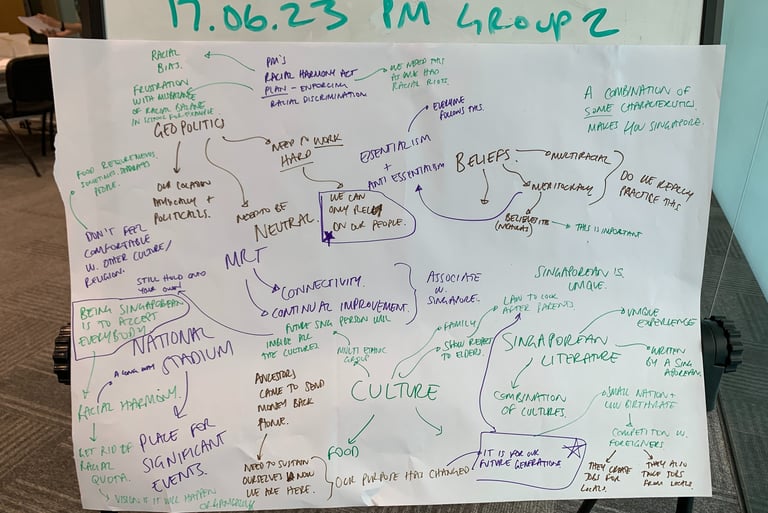 17.06.23 PM GROUP 2
RACIAL
BIAS.
PM'S
RACIAL HARMONY ACT
PLAN - ENFORCING
RACIAL DISCRIMINATION
WE NEED THIS
AS WE HAD
RACIAL RIOTS.
FRUSTRATION
WITH
OF RACIAL BALANCE
IN SCHOOL FOR EXAMPLE.
GEOPOLITICS
NEED TO WORK
HARD
EVERYONE
FOLLOWS THIS.
ESSENTIALISM
+
ANTI ESSENTIALISM
A COMBINATION OF
SOME CHARACTERISTICS
MAKES YOU SINGAPORE.
BELIEFS.
MULTIRACIAL
MERITOCRACY
DO WE REALLY
PRACTICE THIS
BELIEVES IN
THIS IS IMPORTANT
FOOD REQUIREMENTS
SOMETIMES
PEOPLE.
OUR LOCATION
PHYSICALLY +
POLITICALLY.
NEED TO BE
NEUTRAL.
WE CAN
ONLY RELY
ON OUR PEOPLE.
DON'T FEEL
COMFORTABLE
W. OTHER CULTURE/
RELIGION.
STILL HOLD ONTO
YOUR OWN
MRT
CONNECTIVITY.
CONTINUAL IMPROVEMENT.
ASSOCIATE
W.
SINGAPORE.
SINGAPOREAN IS
UNIQUE.
BEING SINGAPOREAN
IS TO ACCEPT
EVERYBODY
NATIONAL
STADIUM
FUTURE SNG PERSON WILL
INSIDE ALL
THE CULTURES
MULTI ETHNIC
GROUP
FAMILY
SHOW RESPECT
TO ELDERS.
LAW TO LOOK
AFTER PARENTS
SINGAPOREAN
LITERATURE
UNIQUE
EXPERIENCE
WRITTEN
BY A SINGAPOREAN.
A LONG WAY
RACIAL HARMONY.
ANCESTORS
CAME TO SEND
MONEY BACK
HOME.
CULTURE
COMBINATION
OF CULTURES.
SMALL NATION +
LOW BIRTHRATE
COMPETITION W.
FOREIGNERS
GET RID OF
RACIAL
QUOTA.
PLACE FOR
SIGNIFICANT
EVENTS.
NEED TO SUSTAIN
OURSELVES NOW
WE ARE HERE.
FOOD
OUR PURPOSE HAS CHANGED
IT IS FOR OUR
FUTURE GENERATIONS
THEY CREATE
JOBS FOR
LOCALS.
THEY ALSO
TAKE JOBS
FROM LOCALS.
IF IT WILL HAPPEN
ORGANICALLY